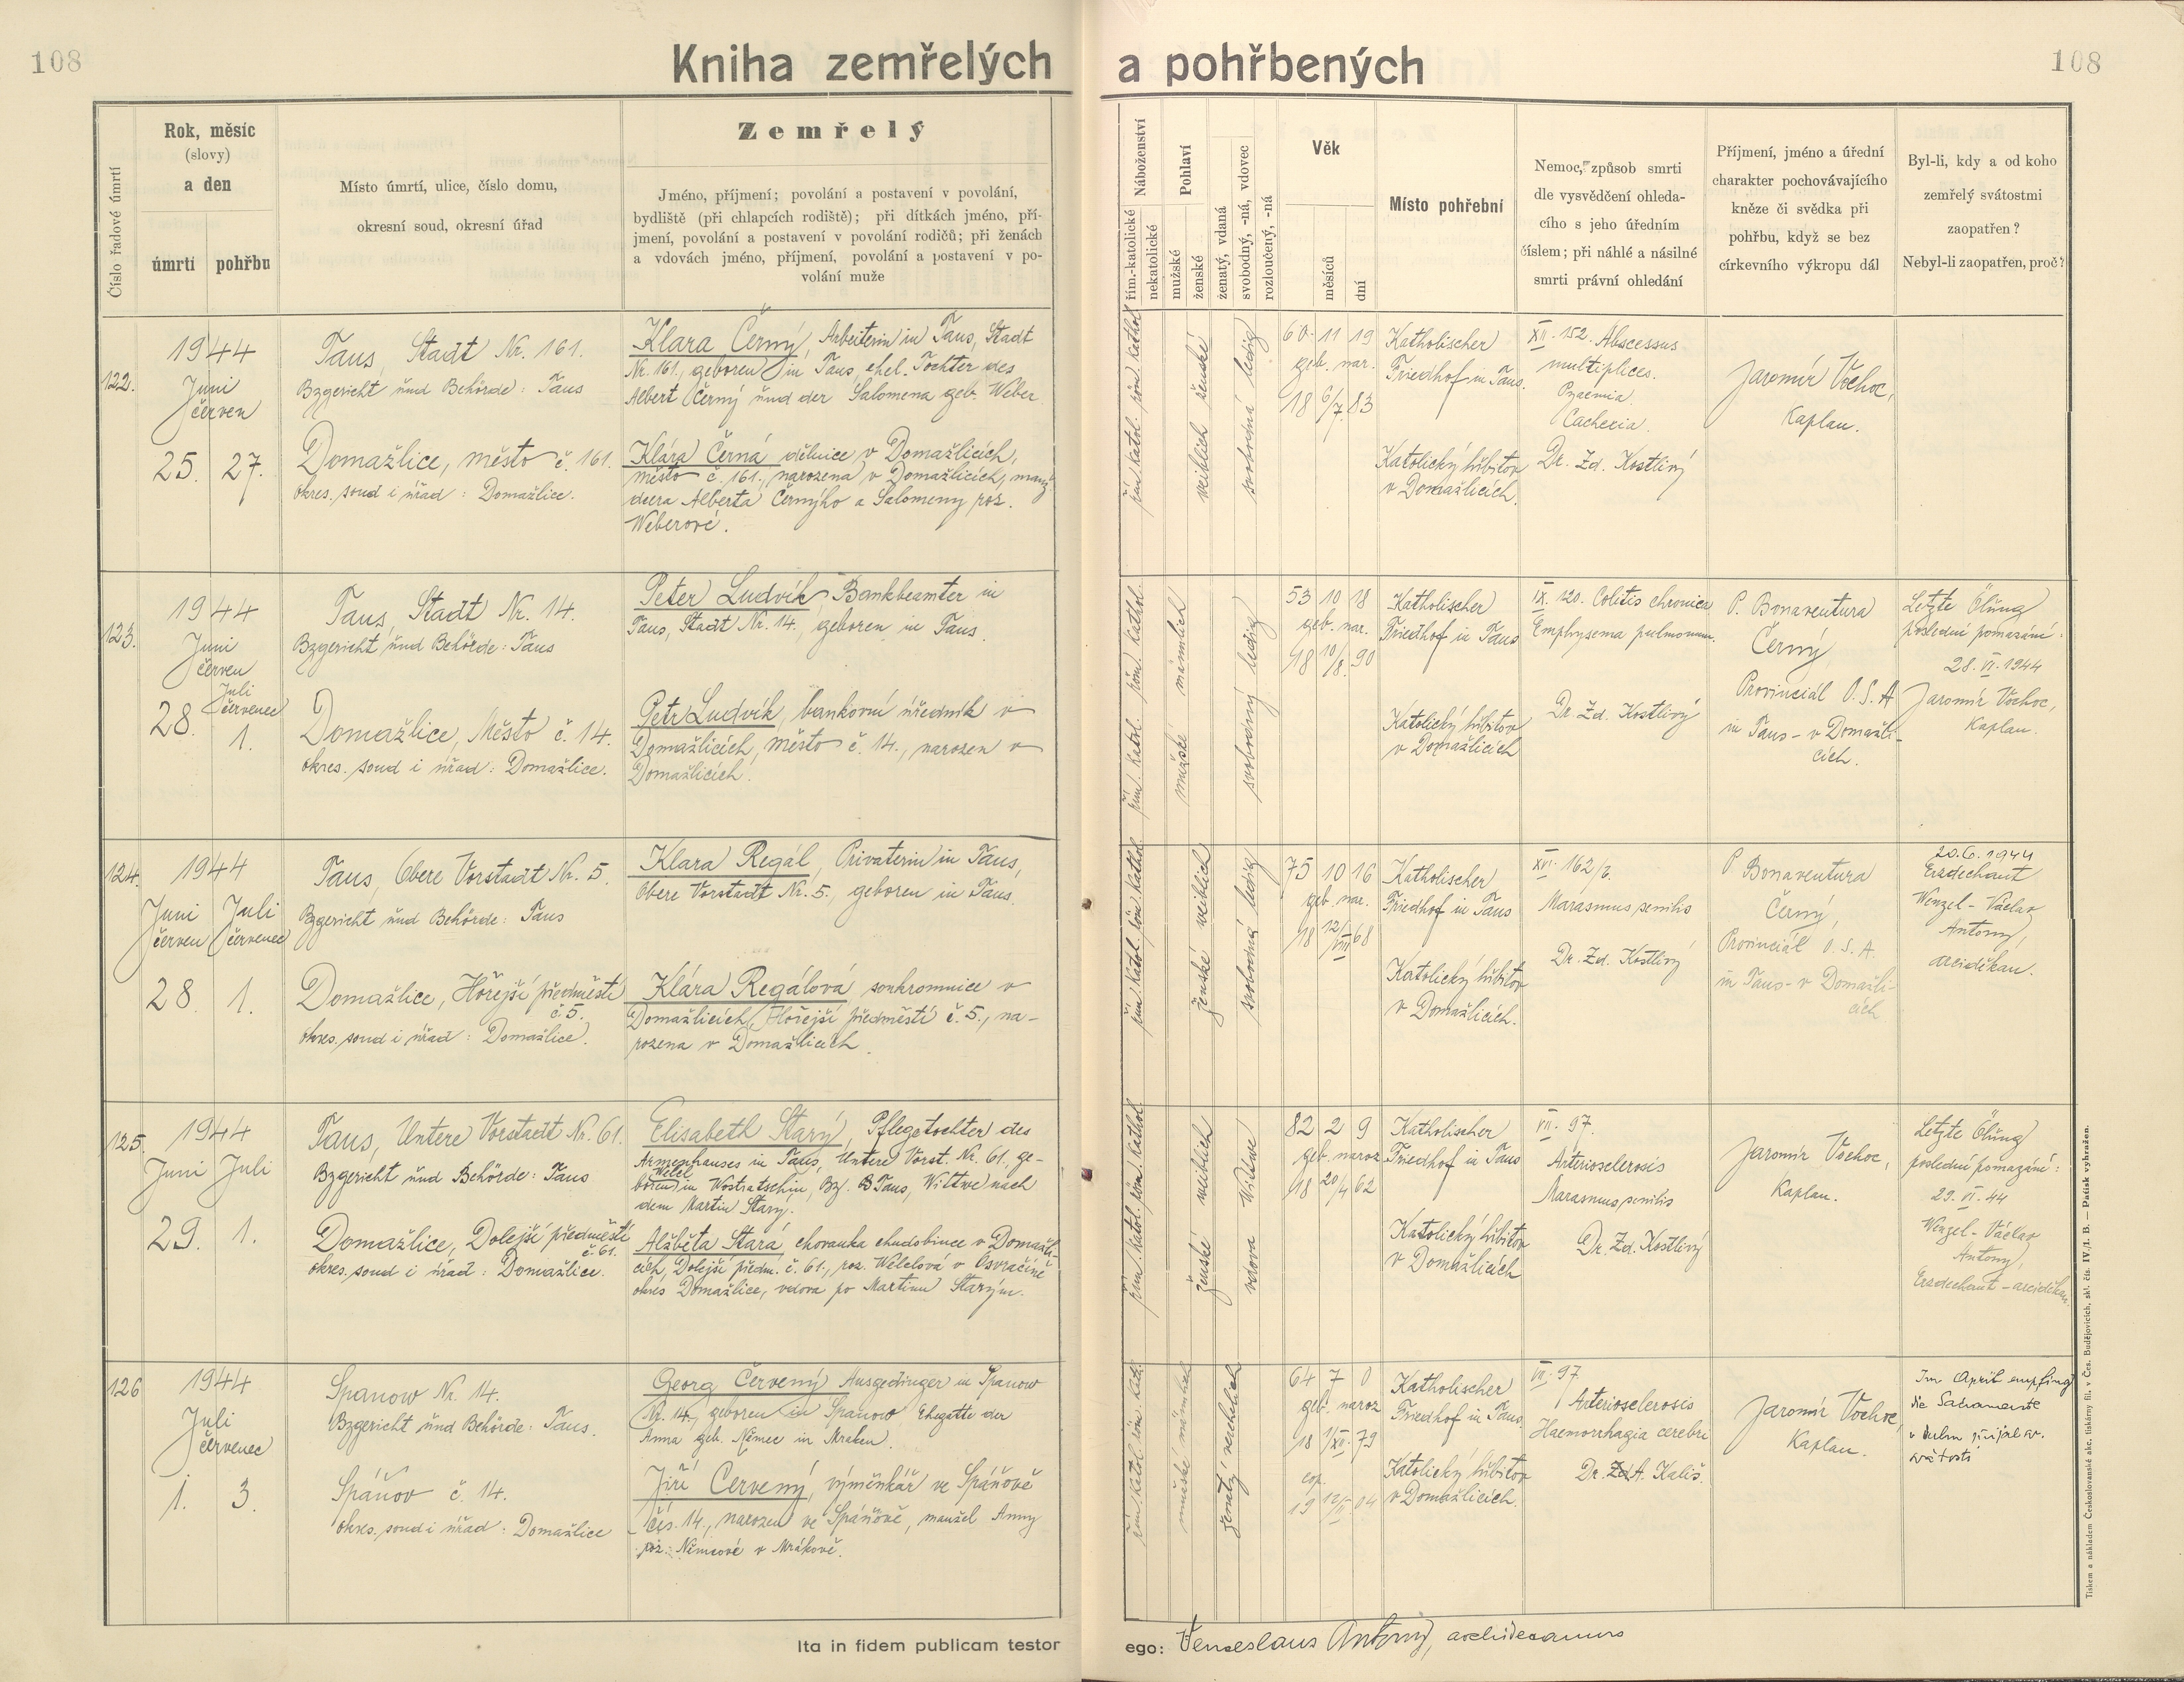 108
Kniha zemřelých a pohřbených
108
Číslo řadové úmrtí
Rok, měsíc
(slovy)
a den
úmrtí
pohřbu
Místo úmrtí, ulice, číslo domu,
okresní soud, okresní úřad
Zemřelý
Jméno, příjmení; povolání a postavení v povolání,
bydliště (při chlapcích rodiště); při dítkách jméno, pří-
jmení, povolání a postavení v povolání rodičů; při ženách
a vdovách jméno, příjmení, povolání a postavení v po-
volání muže
Náboženství
řím.-katolické
nekatolické
Pohlaví
mužské
ženské
ženatý, vdaná
svobodný, -ná, vdovec
rozloučený, -ná
Věk
měsíců
dní
Místo pohřební
Nemoc, způsob smrti
dle vysvědčení ohleda-
cího s jeho úředním
číslem; při náhlé a násilné
smrti právní ohledání
Příjmení, jméno a úřední
charakter pochovávajícího
kněze či svědka při
pohřbu, když se bez
církevního výkropu dál
Byl-li, kdy a od koho
zemřelý svátostmi
zaopatřen?
Nebyl-li zaopatřen, proč?
122.
1944
Juni
červen
25. 27.
Taus, Stadt Nr. 161.
Bzgericht und Behörde: Taus
Domažlice, město č. 161.
okres. soud i úřad: Domažlice.
Klara Černý, Arbeiterin in Taus, Stadt
Nr. 161., geboren in Taus, ehel. Tochter des
Albert Černý und der Salomena geb. Weber
Klára Černá dělnice v Domažlicích,
město č. 161., narozena v Domažlicích, manž
dcera Alberta Černýho a Salomeny roz.
Weberové.
řím. katol. röm. kathol.
weiblich ženské
svobodná ledig
60 11 19
geb. nar.
18 6/7. 83
Katholischer
Friedhof in Taus.
Katolický hřbitov
v Domažlicích.
XII. 152. Abscessus
multiplices.
Pyaemia.
Cachexia.
Dr. Zd. Kostlivý
Jaromír Vochoc,
Kaplan.
123.
1944
Juni
červen
Juli
červenec
28. 1.
Taus, Stadt Nr. 14.
Bzgericht und Behörde: Taus
Domažlice, Město č. 14.
okres. soud i úřad: Domažlice.
Peter Ludvík, Bankbeamter in
Taus, Stadt Nr. 14., geboren in Taus.
Petr Ludvík, bankovní úředník v
Domažlicích, město č. 14., narozen v
Domažlicích.
řím. katol. röm. kathol.
mužské männlich
svobodný ledig
53 10 18
geb. nar.
18 10/8. 90
Katholischer
Friedhof in Taus
Katolický hřbitov
v Domažlicích
IX. 120. Colitis chronica
Emphysema pulmonum.
Dr. Zd. Kostlivý
P. Bonaventura
Černý
Provinciál O. S. A
in Taus - v Domažli-
cích.
Letzte Ölung
poslední pomazání:
28. VI. 1944
Jaromír Vochoc,
Kaplan.
124.
1944
Juni Juli
červen červenec
28 1.
Taus, Obere Vorstadt Nr. 5.
Bzgericht und Behörde: Taus
Domažlice, Hořejší předměstí
č. 5.
okres. soud i úřad: Domažlice.
Klara Regál, Privaterin in Taus,
Obere Vorstadt Nr. 5., geboren in Taus.
Klára Regálová, soukromnice v
Domažlicích, Hořejší předměstí č. 5., na-
rozena v Domažlicích.
řím. katol. röm. kathol.
ženské weiblich
svobodná ledig
75 10 16
geb. nar.
18 12/VIII 68
Katholischer
Friedhof in Taus
Katolický hřbitov
v Domažlicích.
XVI. 162/b.
Marasmus senilis
Dr. Zd. Kostlivý
P Bonaventura
Černý,
Provinciál O. S. A.
in Taus - v Domažli-
cích
20.6.1944
Erzdechant
Wenzel - Václav
Antony,
arciděkan.
125.
1944
Juni Juli
29. 1.
Taus, Untere Vorstadt Nr. 61.
Bzgericht und Behörde: Taus
Domažlice, Dolejší předměstí
č. 61.
okres. soud i úřad: Domažlice.
Elisabeth Starý, Pflegetochter des
Armenhauses in Taus, Untere Vorst. Nr. 61., ge-
Welel
boren in Wostratschin, Bz. Taus, Witwe nach
dem Martin Starý.
Alžběta Stará, chovanka chudobince v Domažli-
cích, Dolejší předm. č. 61., roz. Wélelová v Osvračíně
okres Domažlice, vdova po Martinu Starým.
řím. katol. röm. kathol.
ženské weiblich
vdova Witwe
82 2 9
geb. naroz
18 20/4 62
Katholischer
Friedhof in Taus
Katolický hřbitov
v Domažlicích
VII. 97.
Arteriosclerosis
Marasmus senilis
Dr. Zd. Kostlivý
Jaromír Vochoc,
Kaplan.
Letzte Ölung
poslední pomazání:
29. VI. 44
Wenzel - Václav
Antony,
Erzdechant - arciděkan.
126
1944
Juli
červenec
1. 3.
Spanow Nr. 14.
Bzgericht und Behörde: Taus.
Spáňov č. 14.
okres. soud i úřad: Domažlice
Georg Červený, Ausgedinger in Spanow
Nr. 14., geboren in Spanow, Ehegatte der
Anna geb. Němec in Mraken.
Jiří Červený, výměnkář ve Spáňově
čís. 14., narozen ve Spáňově, manžel Anny
roz. Němcové v Mrákově.
řím. katol. röm. kath.
mužské männlich
ženatý verehelicht
64 7 0
geb. naroz
18 1/XII. 79
cop.
19 12/II. 04
Katholischer
Friedhof in Taus.
Katolický hřbitov
v Domažlicích.
VII. 97.
Arteriosclerosis
Haemorrhagia cerebri
Dr. A. Kališ.
Jaromír Vochoc,
Kaplan.
Im April empfing
die Sacramente
v dubnu přijal sv.
svátosti
Ita in fidem publicam testor
ego: Venceslaus Antony, archidecanus
Tiskem a nákladem Českoslovanské akc. tiskárny fil. v Čes. Budějovicích, skl. čís. IV./1. B. — Patisk vyhražen.